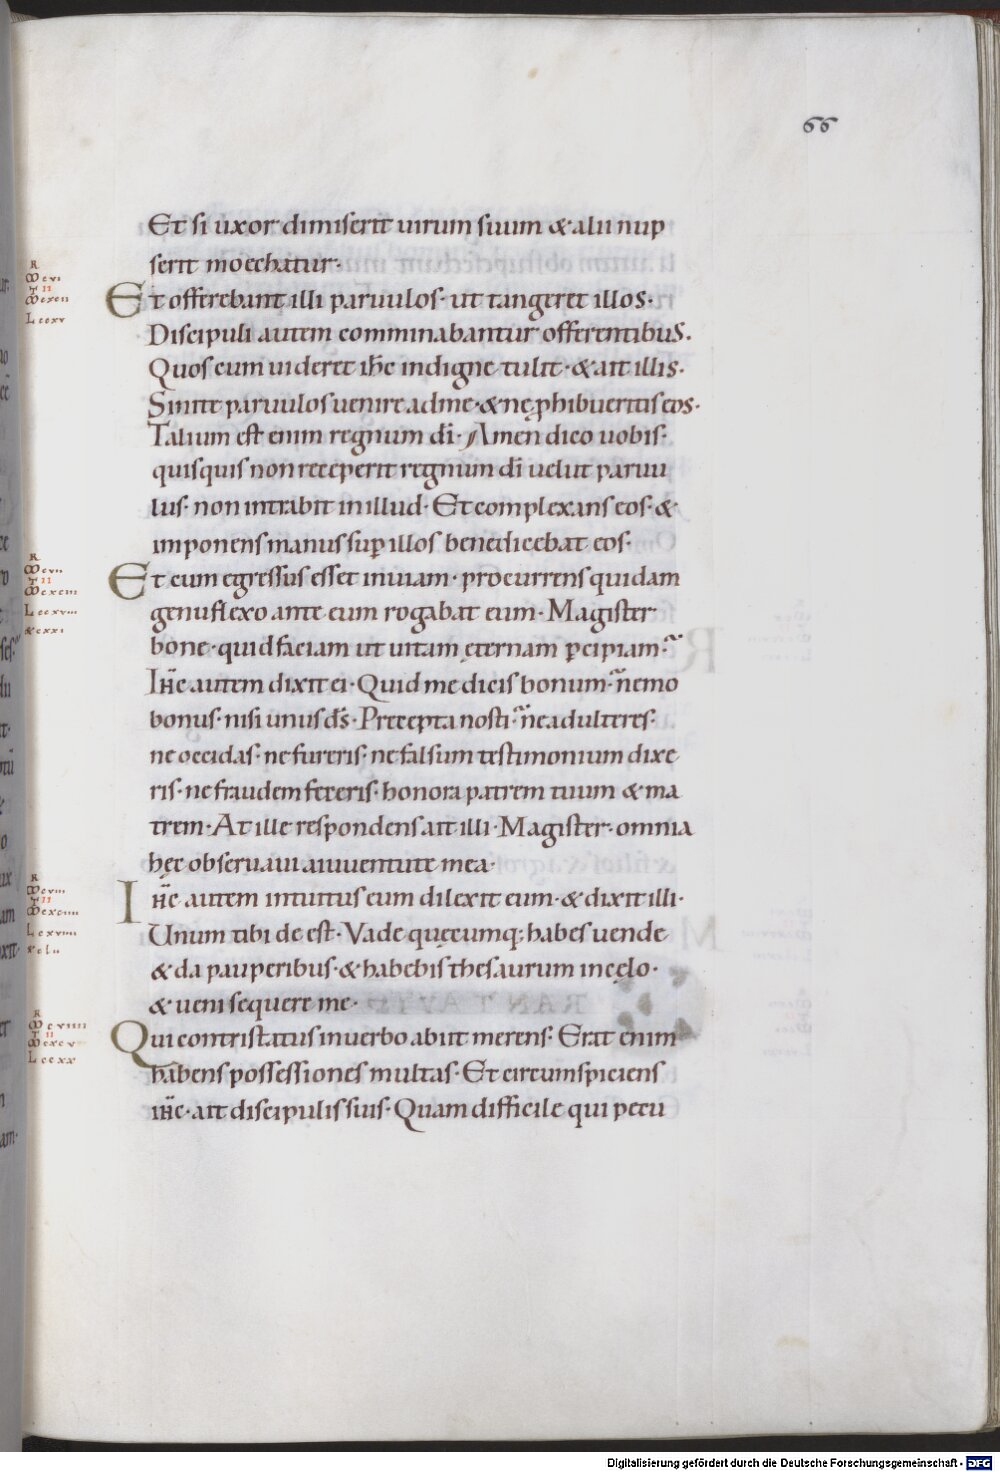 66
Et si uxor dimiserit uirum suum & alii nup
serit moechatur·
Et offerebant illi paruulos· ut tangeret illos·
Discipuli autem comminabantur offerentibus.
Quos cum uideret ihc̄ indigne tulit· & ait illis·
Sinite paruulos uenire ad me· & ne ꝓhibueritis eos·
Talium est enim regnum dī· Amen dico uobis·
quisquis non receperit regnum dī uelut paruu
lus· non intrabit in illud· Et complexans eos· &
imponens manus suꝑ illos benedicebat eos·
Et cum egressus esset in uiam· procurrens quidam
genu flexo ante eum rogabat eum· Magister
bone· quid faciam ut uitam ęternam ꝑcipiam·
Ihc̄ autem dixit ei· Quid me dicis bonum· nemo
bonus· nisi unus ds̄· Precepta nosti· ne adulteres·
ne occidas· ne fureris· ne falsum testimonium dixe
ris· ne fraudem feceris· honora patrem tuum & ma
trem· At ille respondens ait illi· Magister· omnia
hęc obseruaui a iuuentute mea·
Ihc̄ autem intuitus eum dilexit eum· & dixit illi·
Unum tibi de est· Vade quęcumq; habes uende
& da pauperibus· & habebis thesaurum in cęlo·
& ueni sequere me·
Qui contristatus in uerbo abiit merens· Erat enim
habens possessiones multas· Et circumspiciens
ihc̄· ait discipulis suis· Quam difficile qui pecu
Digitalisierung gefördert durch die Deutsche Forschungsgemeinschaft - DFG